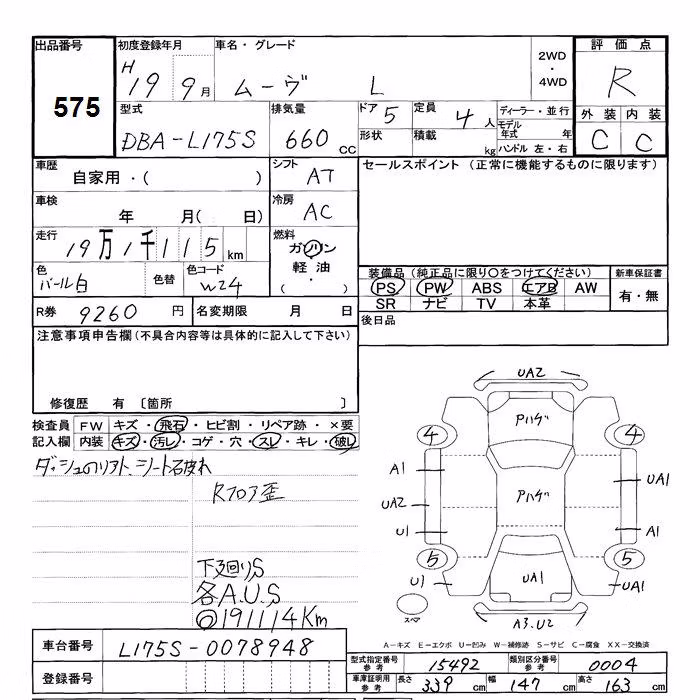 出品番号
575
初度登録年月
H 19 9月
車名・グレード
ムーヴ L
2WD
・
4WD
評価点
R
外装 内装
C C
型式
DBA-L175S
排気量
660 cc
ドア 5
定員 4人
形状
積載 kg
ディーラー・並行
モデル年式 年
ハンドル 左・右
車歴
自家用・( )
シフト
AT
セールスポイント (正常に機能するものに限ります)
車検
年 月( 日)
冷房
AC
走行
19万1千115km
燃料
ガソリン
軽油
( ・ )
色
パール白
色替
色コード
W24
装備品 (純正品に限り○をつけてください)
PS PW ABS エアB AW
SR ナビ TV 本革
新車保証書
有・無
R券 9260 円
名変期限 月 日
後日品
注意事項申告欄 (不具合内容等は具体的に記入して下さい)
修復歴 有 〔箇所 〕
検査員記入欄
FW キズ・飛石・ヒビ割・リペア跡・×要
内装 キズ・汚レ・コゲ・穴・スレ・キレ・破レ
シート破れ
Rフロア歪
下廻りS
各A.U.S
◎191114Km
UA2
Pハゲ
4 4
A1
UA1
UA2
Pハゲ
U1
A1
5 5
U1
UA1
UA1
スペア
A3.U2
A-キズ E-エクボ U-凹み W-補修跡 S-サビ C-腐食 XX-交換済
車台番号 L175S-0078948
登録番号
型式指定番号 参考 15492
類別区分番号 参考 0004
車庫証明用 参考 長さ 339 cm 幅 147 cm 高さ 163 cm